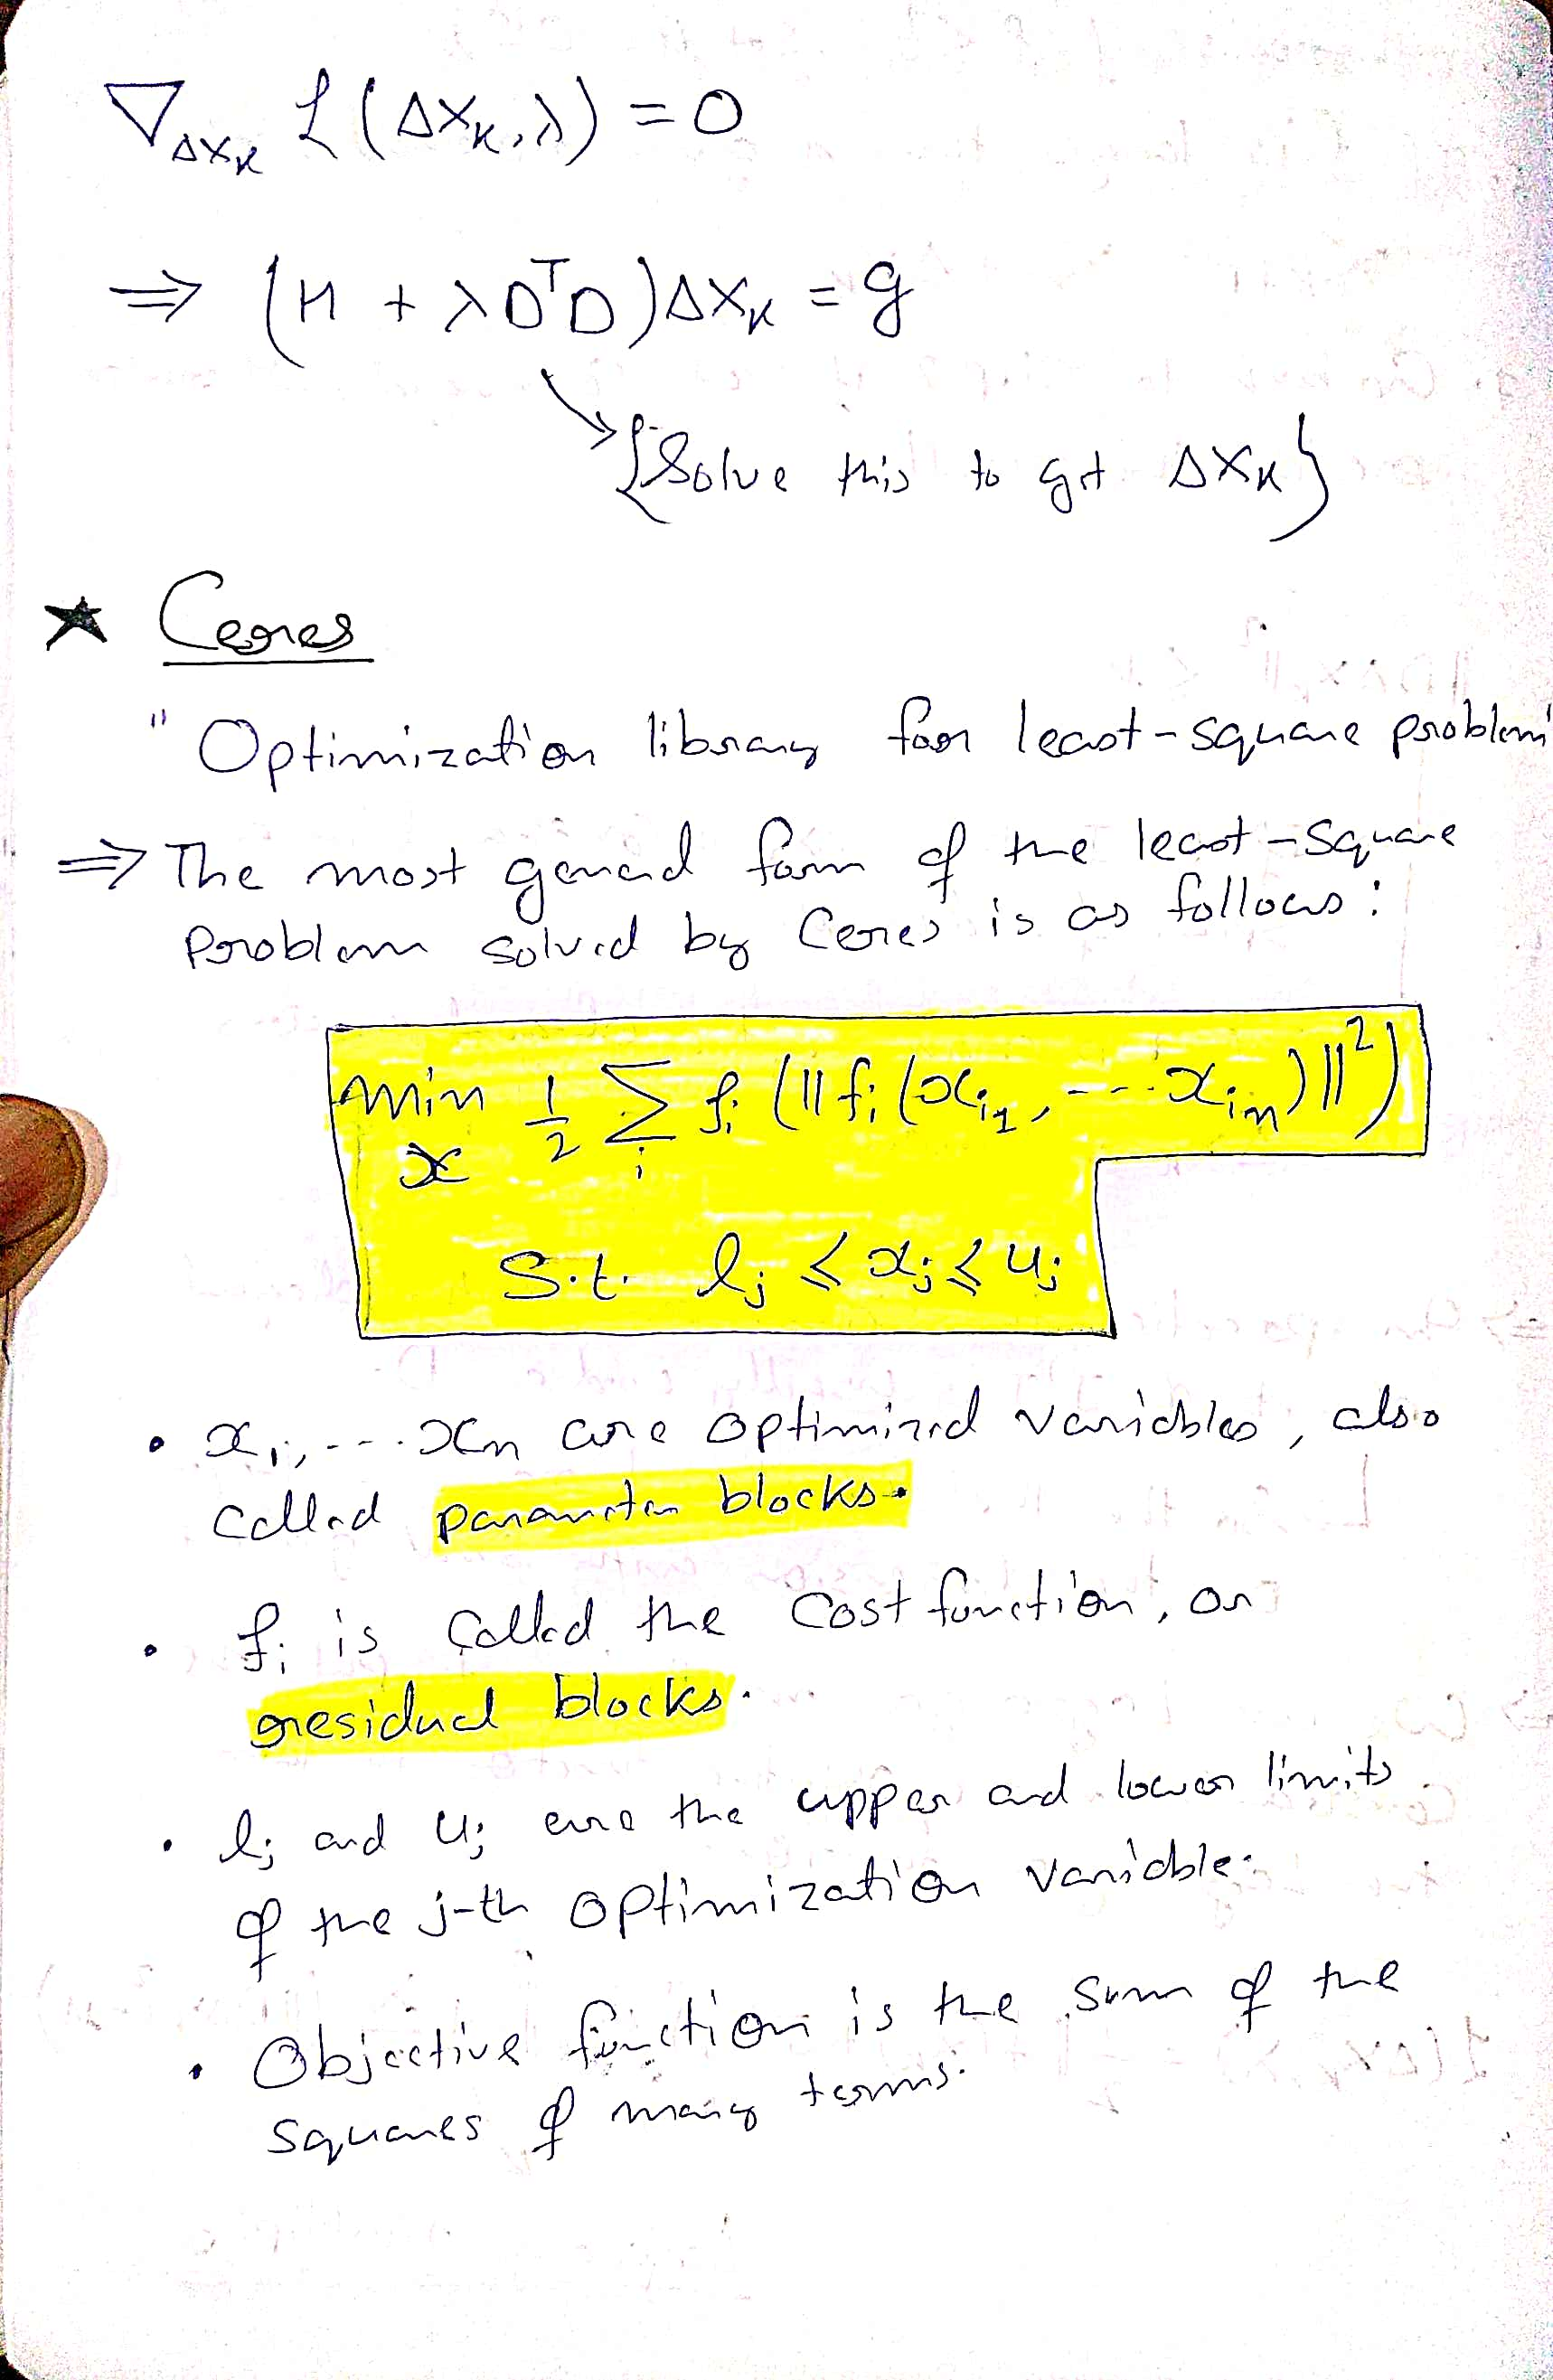 ∇_{ΔX_K} ℒ(ΔX_K, λ) = 0
⇒ (H + λD^TD)ΔX_K = g
{Solve this to get ΔX_K}
★ Ceres
" Optimization library for least-square problem
⇒ The most general form of the least-square
Problem solved by Ceres is as follows:
min_x 1/2 Σ_i f_i (||f_i (x_{i1}, --- x_{in})||^2)
S.t. l_j ≤ x_j ≤ u_j
• x_1, --- x_n are optimized variables, also
called parameter blocks.
• f_i is called the cost function, or
residual blocks.
• l_j and u_j are the upper and lower limits
of the j-th optimization variable.
• Objective function is the sum of the
squares of many terms.